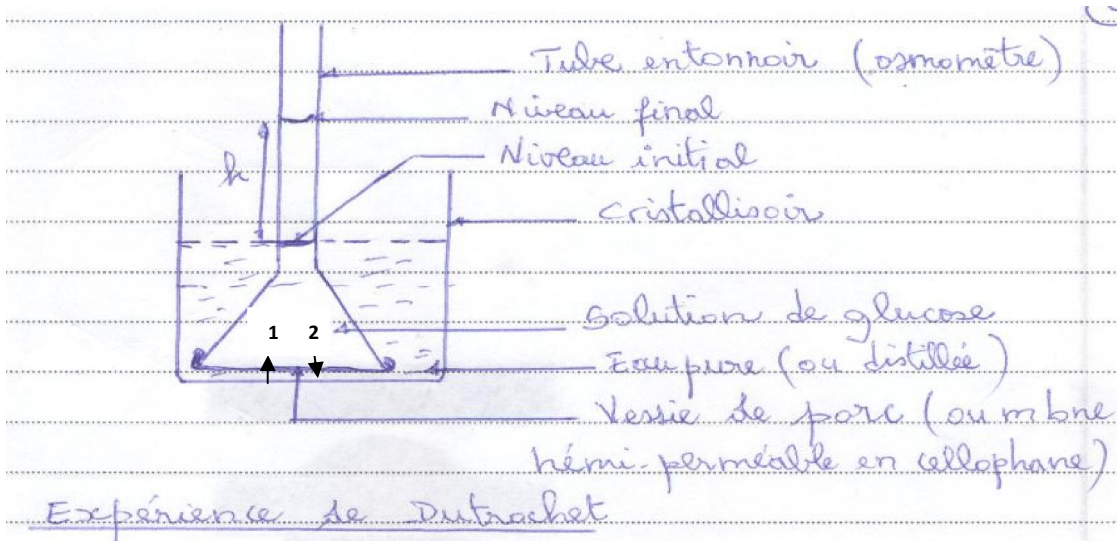 Tube entonnoir (osmomètre)
Niveau final
h
Niveau initial
Cristallisoir
1 2
Solution de glucose
Eau pure (ou distillée)
Vessie de porc (ou mbne
hémi-perméable en cellophane)
Expérience de Dutrochet